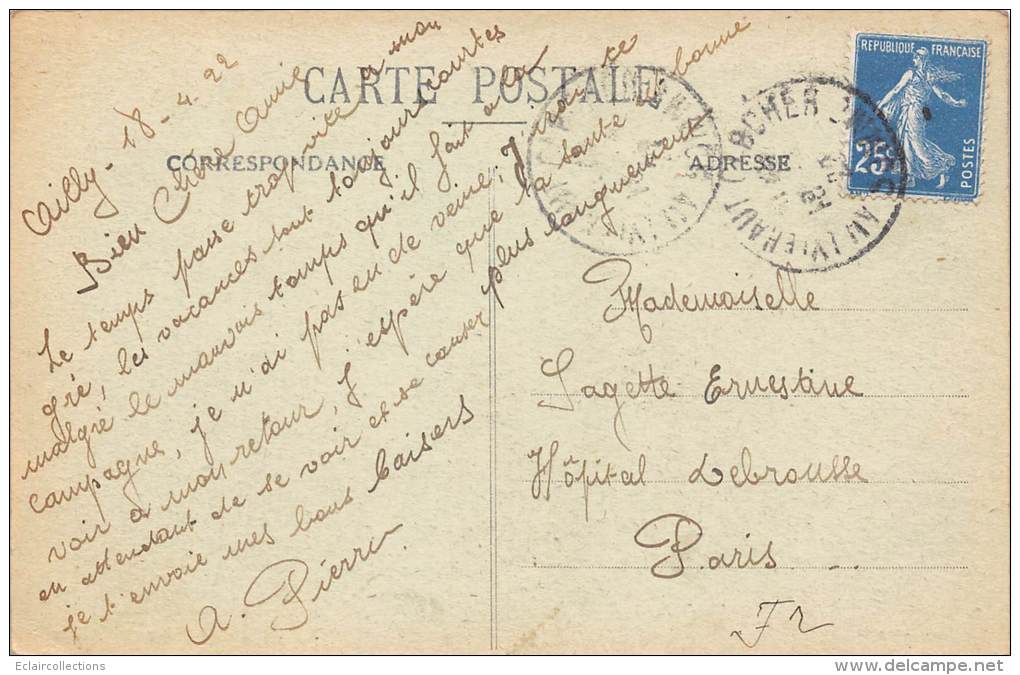 CARTE POSTALE
CORRESPONDANCE
ADRESSE
REPUBLIQUE FRANÇAISE
25c
POSTES
Ailly - 18-4-22
Bien Chère Amie
Le temps passe trop vite a mon
gré, les vacances sont toujour courtes
malgré le mauvais temps qu'il fait a la
campagne, je n'ai pas eu de veine,
voir a mon retour, J'espère que ta santé bonne
en attendant de se voir et se causer plus longuement
je t'envoie mes bons baisers
A. Pierru
Mademoiselle
Lagette Ernestine
Hôpital Debrousse
Paris
Eclaircollections
delcampe.net